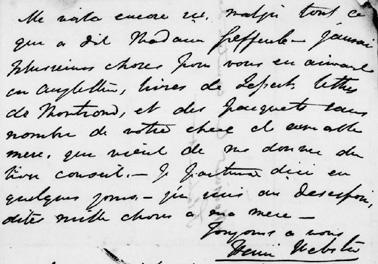 Me voila encore ici, malgré tout ce
que a dit Madame Greffeule – J'aurai
plusieurs choses pour vous en arrivant
en Angleterre, livres de Lefevre, lettres
de Montrond, et des pacquets sans
nombre de votre chere et aimable
mere, que vient de me donner du
bon conseil. – Je partirai d'ici en
quelques jours – j'en suis au desespoir,
dites mille choses a ma mere –
Toujours a vous
Henri Webster